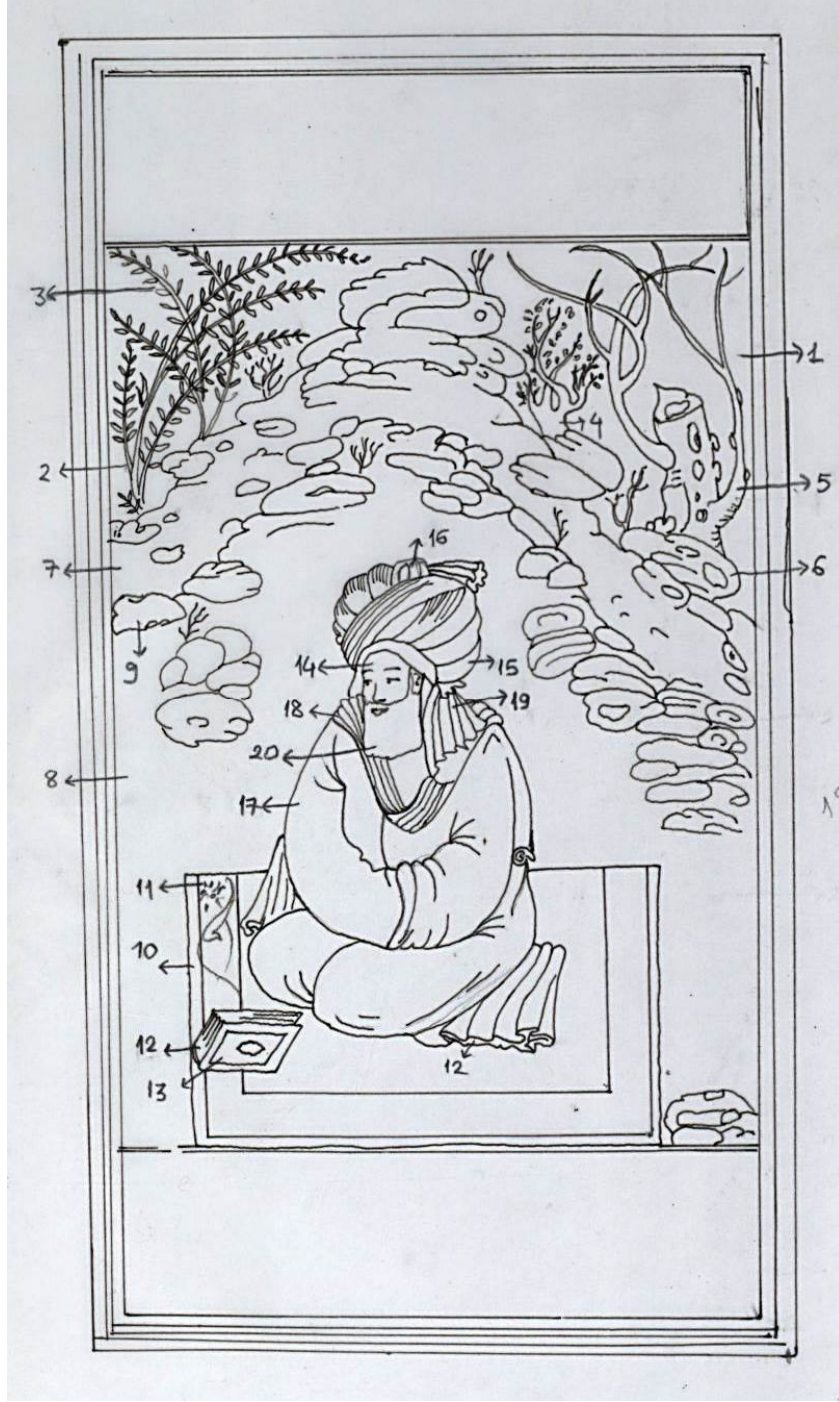 3
1
4
2
5
16
7
6
9
14
15
18
19
20
8
17
11
10
12
12
13